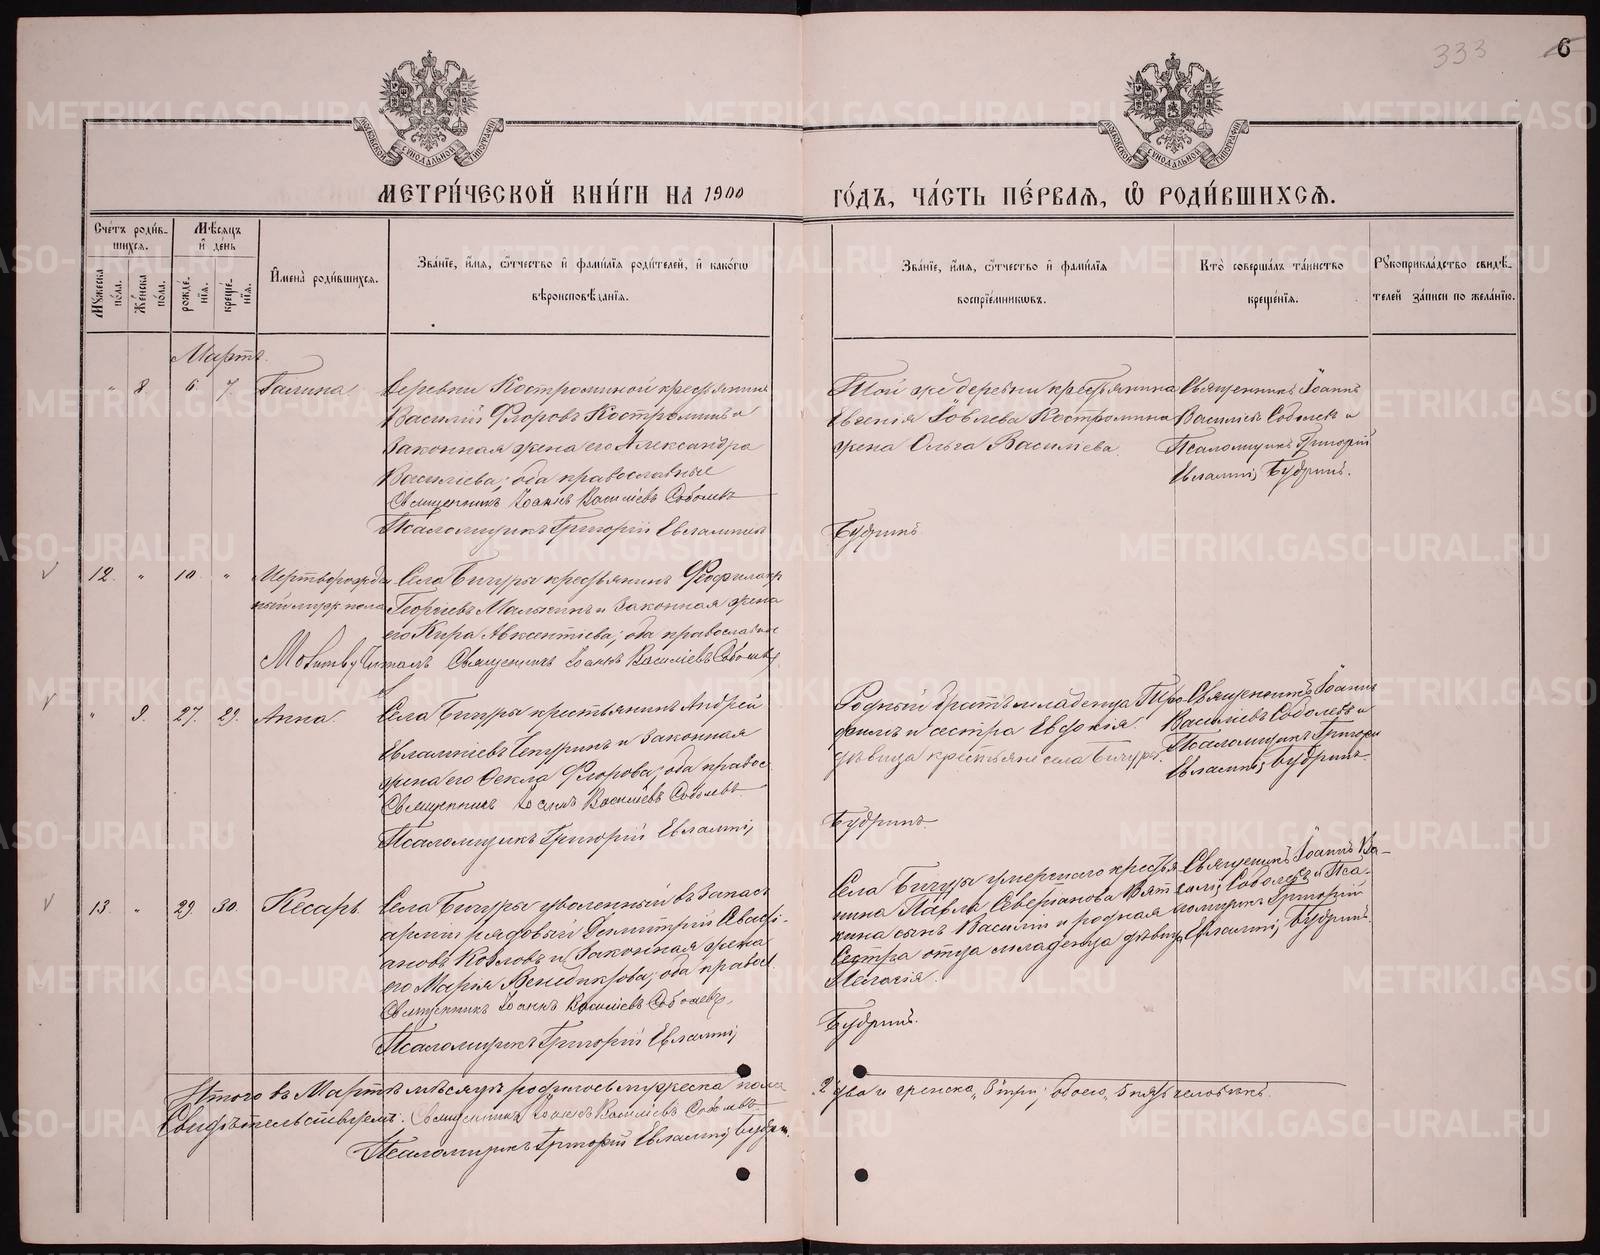 333
6
МОСКОВСКОЙ СѴНОДАЛЬНОЙ ТИПОГРАФІИ
МОСКОВСКОЙ СѴНОДАЛЬНОЙ ТИПОГРАФІИ
МЕТРИ́ЧЕСКОЙ КНИ́ГИ НА 1900
ГО́ДЪ, ЧА́СТЬ ПЕ́РВАѦ, Ѡ РОДИ́ВШИХСѦ.
Сче́тъ роди́в-
шихсѧ.
Мꙋжеска по́ла.
Же́нска по́ла.
Мѣ́сѧцъ
и де́нь
рожде́-
нїѧ.
креще́-
нїѧ.
Имена̀ роди́вшихсѧ.
Зва́нїе, и́мѧ, ѻ҆́тчество и фами́лїѧ роди́телей, и како́гѡ
вѣроисповѣ́данїѧ.
Зва́нїе, и́мѧ, ѻ҆́тчество и фами́лїѧ
воспрїе́мникѡвъ.
Кто̀ соверша́лъ та́инство
креще́нїѧ.
Рꙋкоприкла́дство свидѣ́-
телей за́писи по жела́нїю.
Мартъ.
" 8. 6. 7. Галина
деревни Костроминой крестьянинъ
Василій Флоровъ Костроминъ и
законная жена его Александра
Василіева; оба православные
Священникъ Іоаннъ Василіевъ Соболевъ
Псаломщикъ Григорій Евлампіев
Той же деревни крестьянина
Евгенія Іовлева Костромина
жена Ольга Василіева.
Священникъ Іоаннъ
Василіевъ Соболевъ и
Псаломщикъ Григорій
Евлампіев Будринъ.
Будринъ
12. " 10. " Мертворожден
ный муж. пола
Села Бичуры крестьянинъ Феофилакт
Георгіевъ Малькинъ и законная жена
его Кира Авксентіева; оба православные
Молитву читалъ Священникъ Іоаннъ Василіевъ Соболевъ
" 9. 27. 29. Анна.
Села Бичуры крестьянинъ Андрей
Евлампіевъ Чепуринъ и законная
жена его Фекла Флорова; оба правос.
Священникъ Іоаннъ Василіевъ Соболевъ
Псаломщикъ Григорій Евлампіев
Родный братъ младенца Тро
фимъ и сестра Евдокія
дѣвица крестьяне села Бичуры.
Священникъ Іоаннъ
Василіевъ Соболевъ и
Псаломщикъ Григорій
Евлампіев Будринъ.
Будринъ.
13. " 29. 30. Кесарь.
Села Бичуры уволенный въ запасъ
арміи рядовый Димитрій Севасті-
ановъ Козловъ и законная жена
его Марія Венедиктова; оба правос.
Священникъ Іоаннъ Василіевъ Соболевъ
Псаломщикъ Григорій Евлампіев
Села Бичуры умершаго крестья
нина Павла Северіанова Вят
кина сынъ Василій и родная
сестра отца младенца дѣвица
Пелагія.
Священникъ Іоаннъ Ва-
силіев Соболевъ и Пса-
ломщикъ Григорій
Евлампіев Будринъ.
Будринъ.
Итого въ Мартѣ мѣсяцѣ родилось мужеска пола
2 два и женска 3 три; обоего 5 пять человѣкъ.
Свидѣтельствуемъ: Священникъ Іоаннъ Василіевъ Соболевъ
Псаломщикъ Григорій Евлампіев Будринъ.